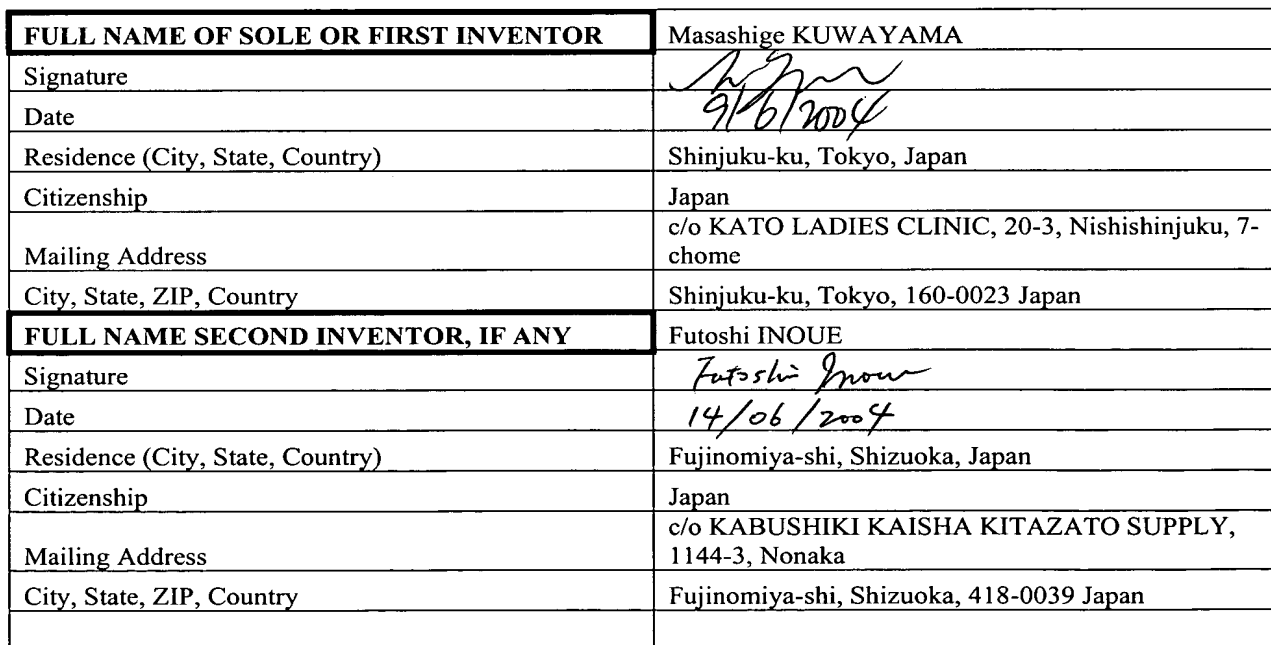 FULL NAME OF SOLE OR FIRST INVENTOR Masashige KUWAYAMA
Signature
Date 9/6/2004
Residence (City, State, Country) Shinjuku-ku, Tokyo, Japan
Citizenship Japan
Mailing Address c/o KATO LADIES CLINIC, 20-3, Nishishinjuku, 7-
chome
City, State, ZIP, Country Shinjuku-ku, Tokyo, 160-0023 Japan
FULL NAME SECOND INVENTOR, IF ANY Futoshi INOUE
Signature Futoshi Inoue
Date 14/06/2004
Residence (City, State, Country) Fujinomiya-shi, Shizuoka, Japan
Citizenship Japan
Mailing Address c/o KABUSHIKI KAISHA KITAZATO SUPPLY,
1144-3, Nonaka
City, State, ZIP, Country Fujinomiya-shi, Shizuoka, 418-0039 Japan